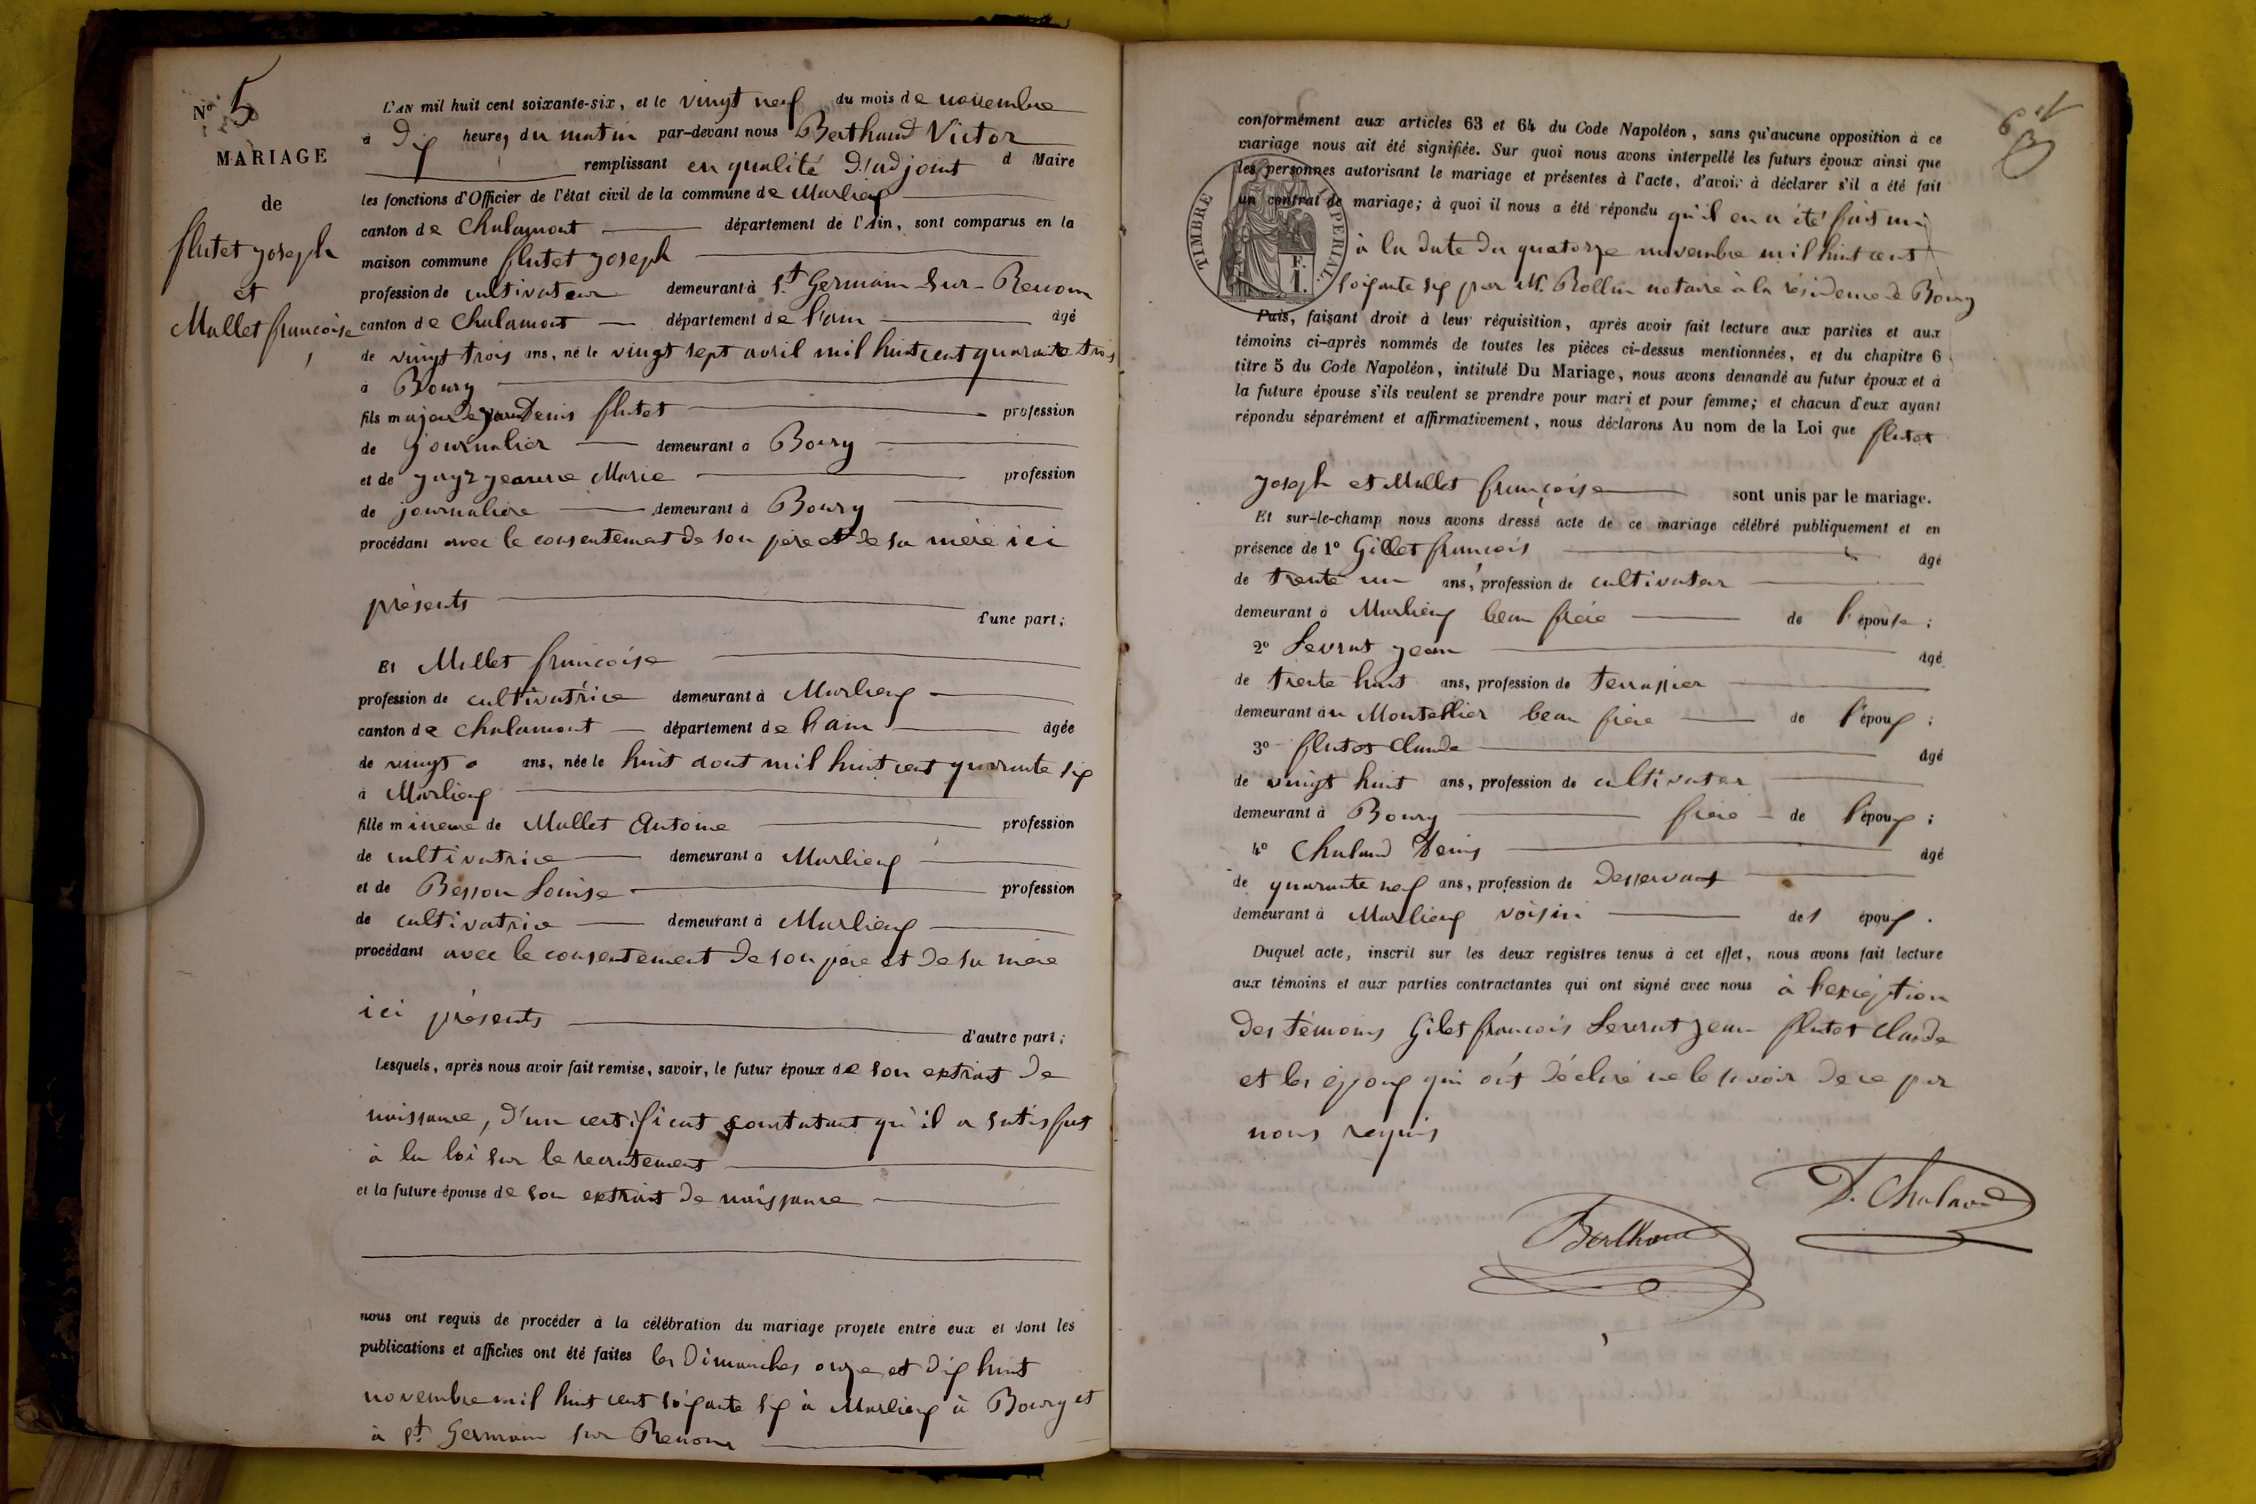 N° 5
MARIAGE
de
flutet joseph
et
Mallet francoise
L'AN mil huit cent soixante-six, et le vingt neuf du mois de novembre
à dix heures du matin par-devant nous Berthaud Victor
remplissant en qualité d'adjoint d Maire
les fonctions d'Officier de l'état civil de la commune de Marlieux
canton de Chalamont département de l'Ain, sont comparus en la
maison commune flutet joseph
profession de cultivateur demeurant à St Germain sur Renom
canton de Chalamont département de l'ain âgé
de vingt trois ans, né le vingt sept avril mil huit cent quarante trois
à Bourg
fils majeur de jean Denis flutet profession
de journalier demeurant à Bourg
et de jeanne Marie profession
de journalière demeurant à Bourg
procédant avec le consentement de son père et de sa mère ici
présents d'une part ;
Et Mallet francoise
profession de cultivatrice demeurant à Marlieux
canton de Chalamont département de l'ain âgée
de vingt ans, née le huit aout mil huit cent quarante six
à Marlieux
fille mineure de Mallet Antoine profession
de cultivatrice demeurant à Marlieux
et de Besson Louise profession
de cultivatrice demeurant à Marlieux
procédant avec le consentement de son père et de sa mère
ici présents d'autre part ;
Lesquels, après nous avoir fait remise, savoir, le futur époux de son extrait de
naissance, d'un certificat constatant qu'il a satisfait
à la loi sur le recrutement
et la future épouse de son extrait de naissance
nous ont requis de procéder à la célébration du mariage projeté entre eux et dont les
publications et affiches ont été faites les dimanches onze et dix huit
novembre mil huit cent soixante six à Marlieux à Bourg et
à St Germain sur Renom
conformément aux articles 63 et 64 du Code Napoléon, sans qu'aucune opposition à ce
mariage nous ait été signifiée. Sur quoi nous avons interpellé les futurs époux ainsi que
les personnes autorisant le mariage et présentes à l'acte, d'avoir à déclarer s'il a été fait
un contrat de mariage ; à quoi il nous a été répondu qu'il en a été fait un
TIMBRE IMPERIAL
F.
1.
à la date du quatorze novembre mil huit cent
soixante six par M. Rollin notaire à la résidence de Bourg
Puis, faisant droit à leur réquisition, après avoir fait lecture aux parties et aux
témoins ci-après nommés de toutes les pièces ci-dessus mentionnées, et du chapitre 6
titre 5 du Code Napoléon, intitulé Du Mariage, nous avons demandé au futur époux et à
la future épouse s'ils veulent se prendre pour mari et pour femme ; et chacun d'eux ayant
répondu séparément et affirmativement, nous déclarons Au nom de la Loi que flutet
joseph et Mallet françoise sont unis par le mariage.
Et sur-le-champ nous avons dressé acte de ce mariage célébré publiquement et en
présence de 1° Gillet françois âgé
de trente un ans, profession de cultivateur
demeurant à Marlieux beau frère de l'épouse ;
2° Levrat jean âgé
de trente huit ans, profession de terrassier
demeurant au Montellier beau frère de l'époux ;
3° flutet Claude âgé
de vingt huit ans, profession de cultivateur
demeurant à Bourg frère de l'époux ;
4° Chaland Denis âgé
de quarante neuf ans, profession de desservant
demeurant à Marlieux voisin des époux.
Duquel acte, inscrit sur les deux registres tenus à cet effet, nous avons fait lecture
aux témoins et aux parties contractantes qui ont signé avec nous à l'exception
des témoins Gilet francois Levrat jean flutet Claude
et les époux qui ont déclaré ne le savoir de ce par
nous requis
D. Chaland
Berthaud